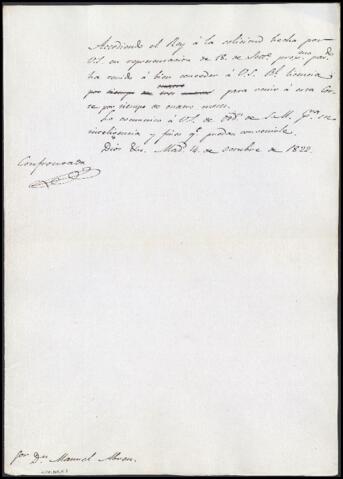 Accediendo el Rey á la solicitud hecha por
V.S. en representacion de 18. de Setre. proxmo. pasdo.
ha venido á bien conceder á V.S. Rl. licencia
para venir á esta Cor-
te por tiempo de cuatro meses.
Lo comunico á V.S. de Ordn. de S.M. pra. su
inteligencia y fines qe. puedan convenirle.
Dios &a. Madd. 4. de Octubre de 1822.
Confrontada
Sor. Dn. Manuel